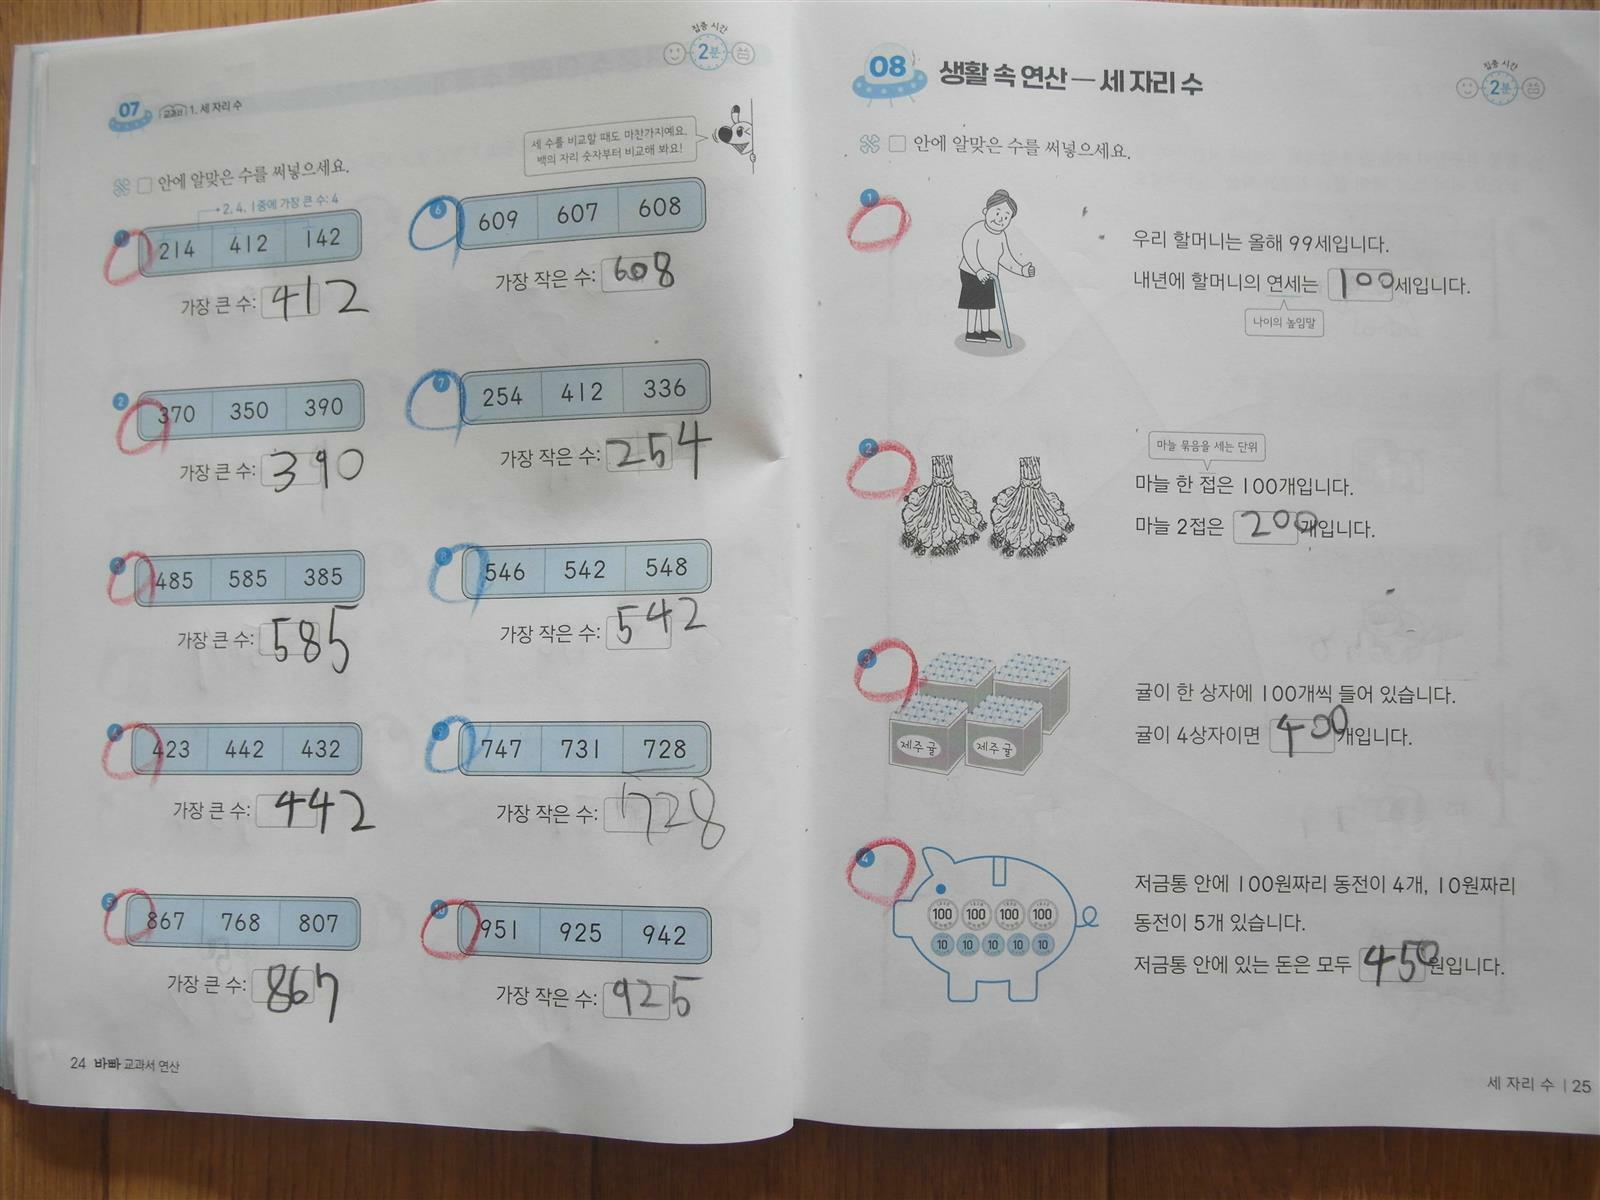 집중 시간
2분
07 교과서 1. 세 자리 수
세 수를 비교할 때도 마찬가지예요.
백의 자리 숫자부터 비교해 봐요!
□ 안에 알맞은 수를 써넣으세요.
2, 4, 1중에 가장 큰 수: 4
1 214 412 142
가장 큰 수: 412
2 370 350 390
가장 큰 수: 390
3 485 585 385
가장 큰 수: 585
4 423 442 432
가장 큰 수: 442
5 867 768 807
가장 큰 수: 867
6 609 607 608
가장 작은 수: 608
7 254 412 336
가장 작은 수: 254
8 546 542 548
가장 작은 수: 542
9 747 731 728
가장 작은 수: 728
10 951 925 942
가장 작은 수: 925
24 바빠 교과서 연산
08 생활 속 연산 — 세 자리 수
집중 시간
2분
□ 안에 알맞은 수를 써넣으세요.
1
우리 할머니는 올해 99세입니다.
내년에 할머니의 연세는 100세입니다.
나이의 높임말
2
마늘 묶음을 세는 단위
마늘 한 접은 100개입니다.
마늘 2접은 200개입니다.
3
제주 귤 제주 귤
귤이 한 상자에 100개씩 들어 있습니다.
귤이 4상자이면 400개입니다.
4
100 100 100 100
10 10 10 10 10
저금통 안에 100원짜리 동전이 4개, 10원짜리
동전이 5개 있습니다.
저금통 안에 있는 돈은 모두 450원입니다.
세 자리 수 | 25